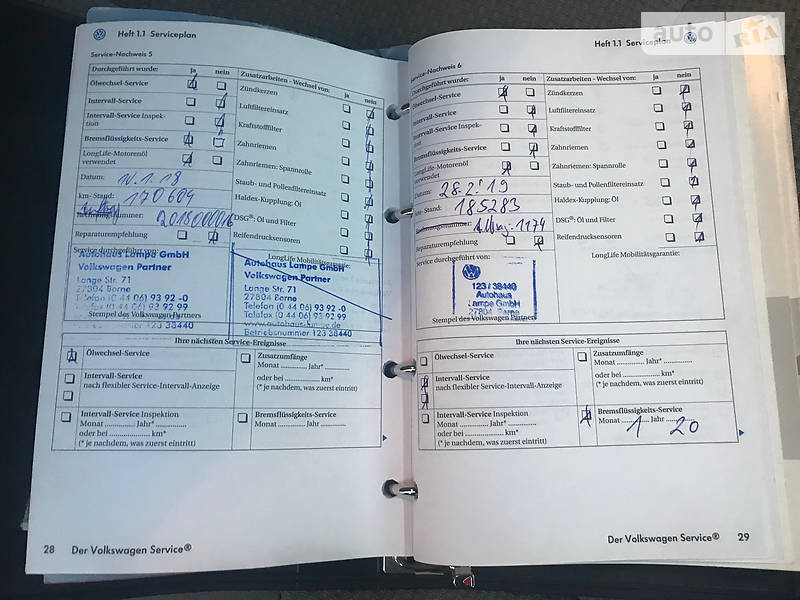 Heft 1.1 Serviceplan
Service-Nachweis 5
Durchgeführt wurde: ja nein
Ölwechsel-Service
Intervall-Service
Intervall-Service Inspek-
tion
Bremsflüssigkeits-Service
LongLife-Motorenöl
verwendet
Datum: 10.1.18
km-Stand: 170604
2018000016
Reparaturempfehlung
Service durchgeführt von:
Zusatzarbeiten - Wechsel von: ja nein
Zündkerzen
Luftfiltereinsatz
Kraftstofffilter
Zahnriemen
Zahnriemen: Spannrolle
Staub- und Pollenfiltereinsatz
Haldex-Kupplung: Öl
DSG®: Öl und Filter
Reifendrucksensoren
LongLife Mobilitätsgarantie:
Autohaus Lampe GmbH
Volkswagen Partner
Lange Str. 71
27804 Berne
Telefon (0 44 06) 93 92 -0
Telefax (0 44 06) 93 92 99
Stempel des Volkswagen Partners
Autohaus Lampe GmbH
Volkswagen Partner
Lange Str. 71
27804 Berne
Telefon (0 44 06) 93 92 -0
Telefax (0 44 06) 93 92 99
www.autohaus-lampe.de
Betriebsnummer 123 38440
Ihre nächsten Service-Ereignisse
Ölwechsel-Service
Intervall-Service
nach flexibler Service-Intervall-Anzeige
Intervall-Service Inspektion
Monat ............ Jahr* ................
oder bei .................... km*
(* je nachdem, was zuerst eintritt)
Zusatzumfänge
Monat ............ Jahr* ................
oder bei .................... km*
(* je nachdem, was zuerst eintritt)
Bremsflüssigkeits-Service
Monat ............ Jahr ................
28 Der Volkswagen Service®
Heft 1.1 Serviceplan
auto RIA
Service-Nachweis 6
Durchgeführt wurde: ja nein
Ölwechsel-Service
Intervall-Service
Intervall-Service Inspek-
tion
Bremsflüssigkeits-Service
LongLife-Motorenöl
verwendet
Datum: 28.2.19
km-Stand: 185283
1174
Reparaturempfehlung
Service durchgeführt von:
Zusatzarbeiten - Wechsel von: ja nein
Zündkerzen
Luftfiltereinsatz
Kraftstofffilter
Zahnriemen
Zahnriemen: Spannrolle
Staub- und Pollenfiltereinsatz
Haldex-Kupplung: Öl
DSG®: Öl und Filter
Reifendrucksensoren
LongLife Mobilitätsgarantie:
123/38440
Autohaus
Lampe GmbH
27804 Berne
Stempel des Volkswagen Partners
Ihre nächsten Service-Ereignisse
Ölwechsel-Service
Intervall-Service
nach flexibler Service-Intervall-Anzeige
Intervall-Service Inspektion
Monat ............ Jahr* ................
oder bei .................... km*
(* je nachdem, was zuerst eintritt)
Zusatzumfänge
Monat ............ Jahr* ................
oder bei .................... km*
(* je nachdem, was zuerst eintritt)
Bremsflüssigkeits-Service
Monat 1 Jahr 20
Der Volkswagen Service® 29